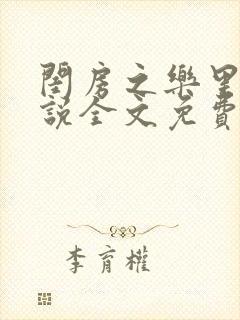 閨房之樂里
說全文免費
李育權